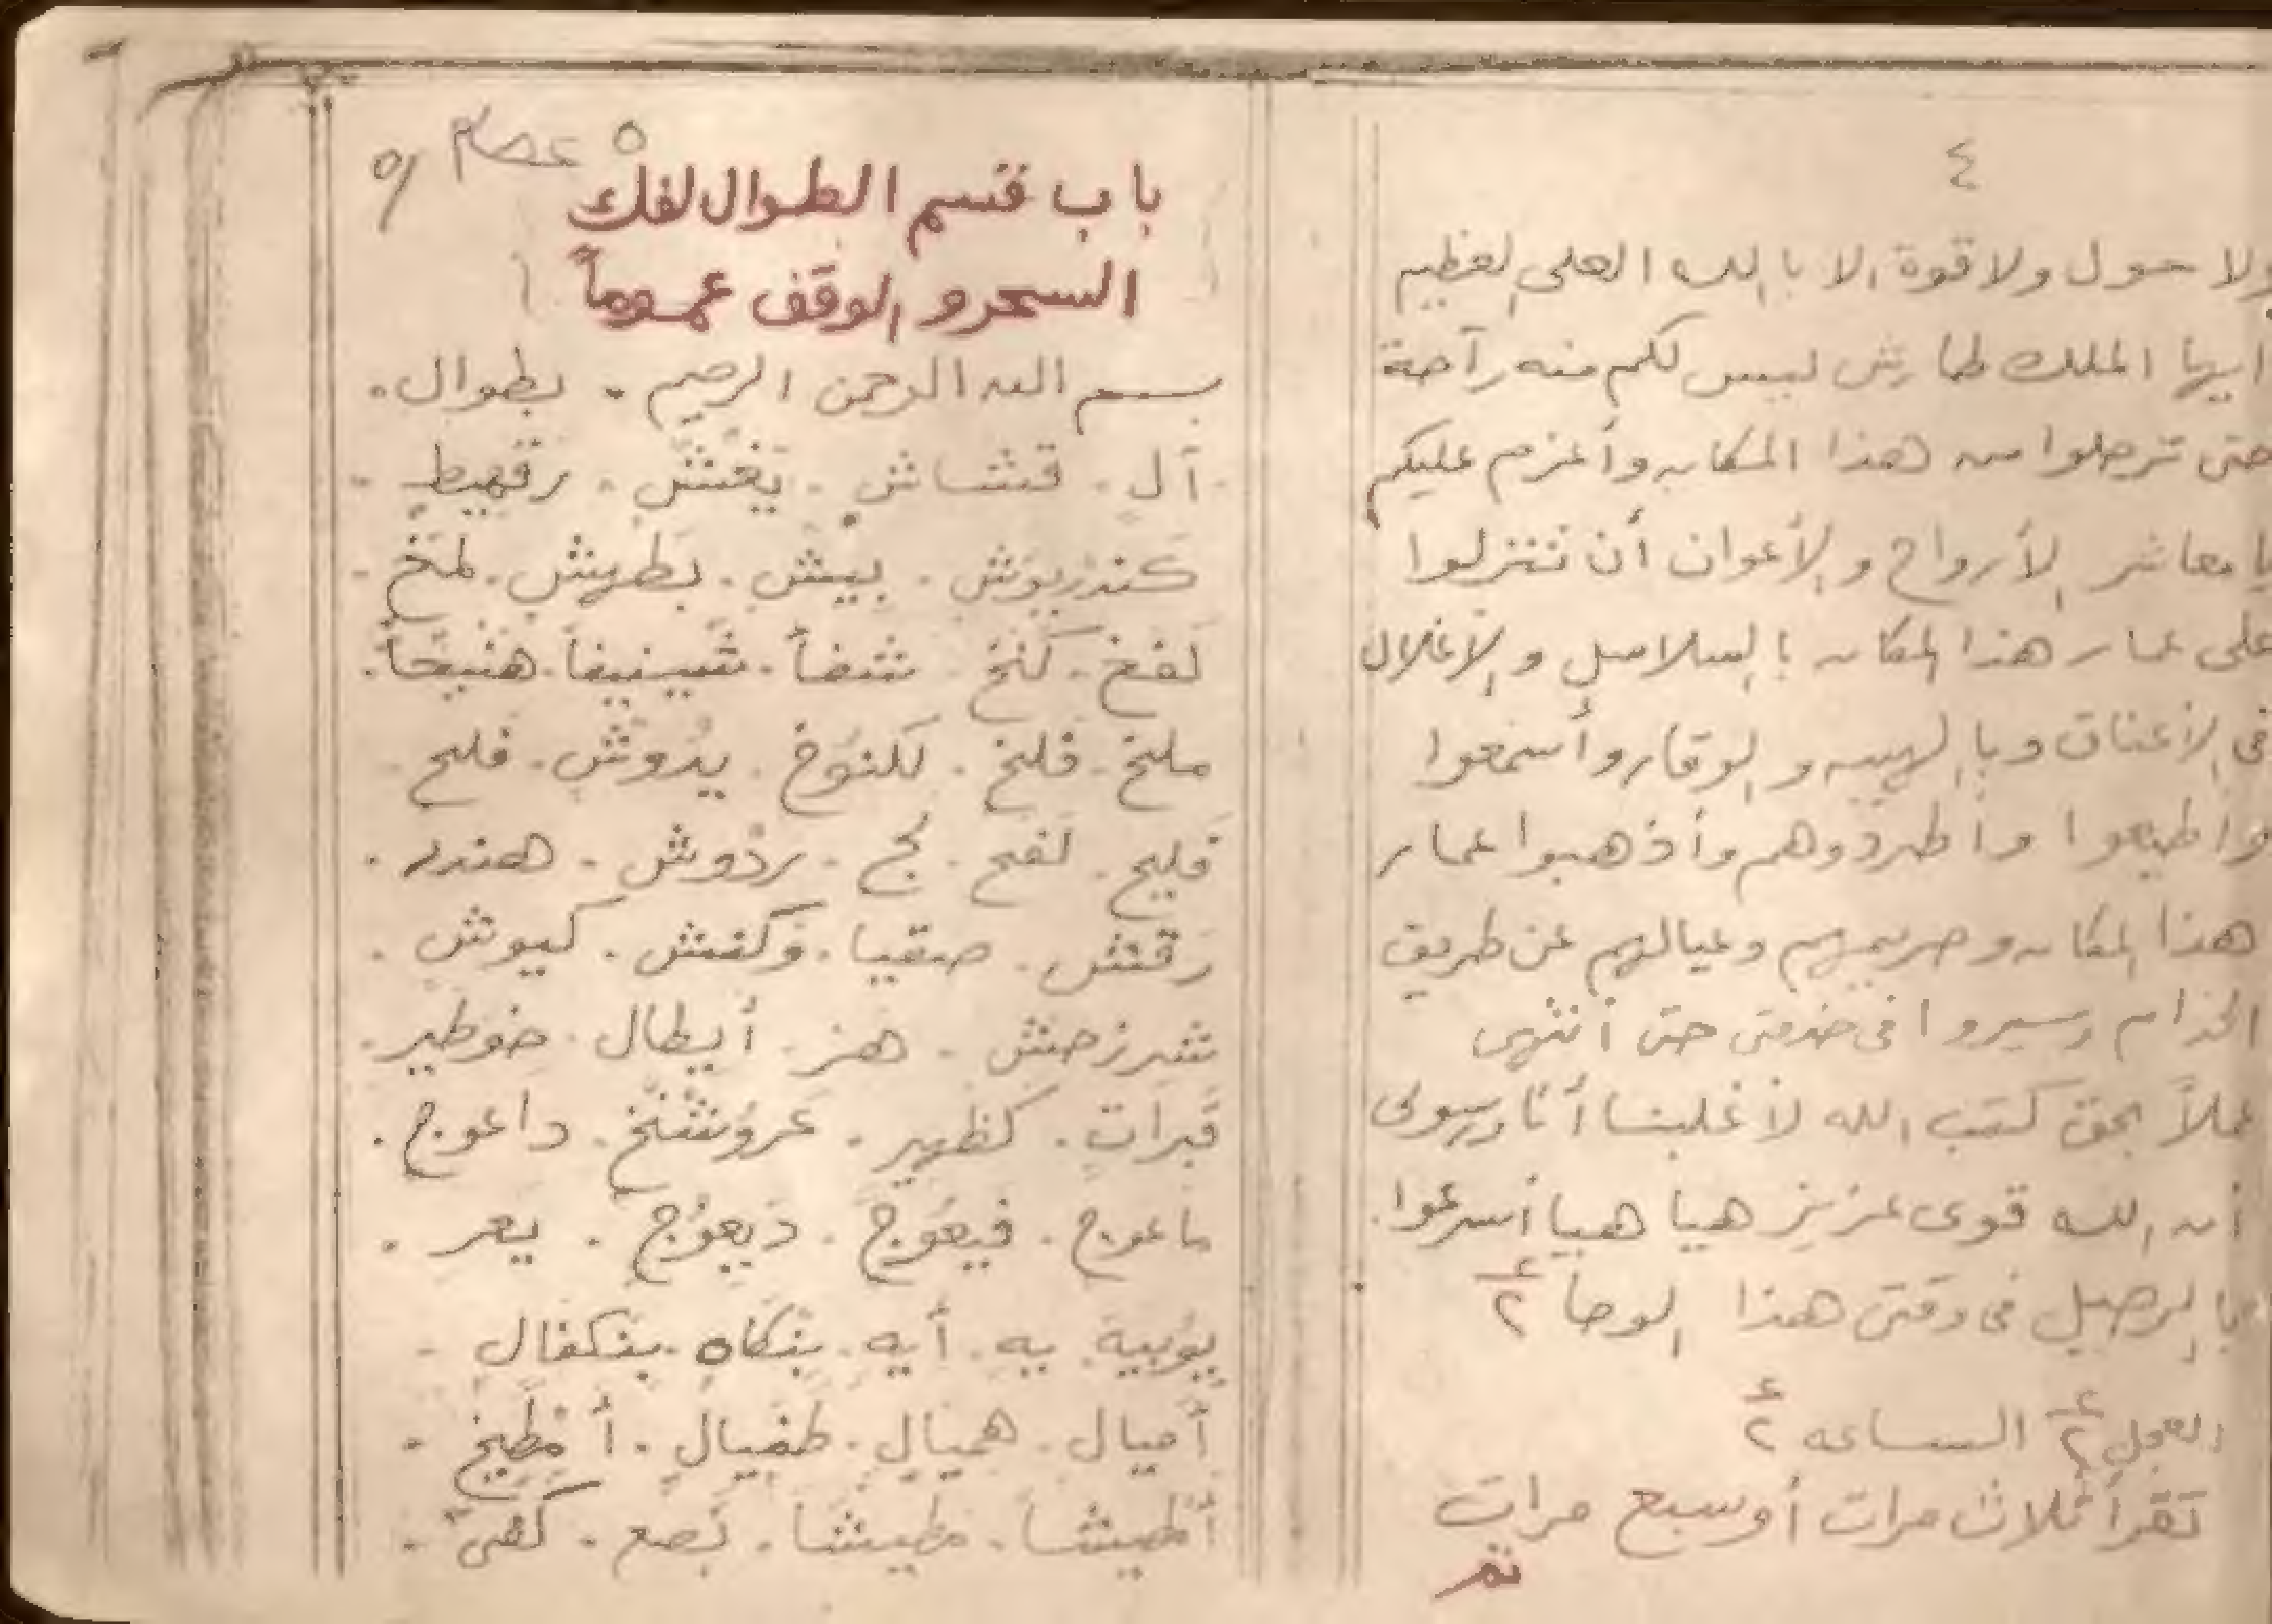 ٤
ولا حول ولا قوة الا بالله العلى العظيم
ايها الملك طارش ليس لكم منه رآحة
حتى ترحلوا من هذا المكان وأعزم عليكم
يا معاشر الأرواح والأعوان أن تنزلوا
على عمار هذا المكان بالسلاسل والاغلال
فى الأعناق وبالهيبه والوقار وأسمعوا
وأطيعوا وأطردوهم وأذهبوا عمار
هذا المكان وحريمهم وعيالهم عن طريق
الخدام وسيروا فى خدمتى حتى أنتهى
عملاً بحق كتب الله لأغلبنا أنا ورسولى
أن الله قوى عزيز هيا هيا أسرعوا.
بالرحيل فى وقتى هذا الوحا ٢
العجل ٢ الساعه ٢
تقرأ ثلاث مرات أو سبع مرات
تم
٥ عصام ٥/
باب قسم الطوال لفك
السحر والوقف عموماً
بسم الله الرحمن الرحيم . بطوال .
آل . قشاش . يَغشش . رقهيط .
كندريوش . بيش . بطهش . لمخ .
لفخ . كنخ . شفاً . شيينيفاً . هنيخاً .
ملخ . فلخ . لكنوخ . يدوش . فلح .
فليح . لفح . لج . ردوش . هندر .
رقتش . صقيا . وكفش . كيوش .
شرزحش . هز . أيطال . خوطير .
قبرات . كظهير . عروشنخ . داعوج .
ماعوج . فيعوج . ديعوج . يعر .
يوبية . يه . أيه . بنكاه . بنكفال .
أميال . هميال . طفيال . أمطيخ .
أطيشا . مطيشا . بصع . كهى .